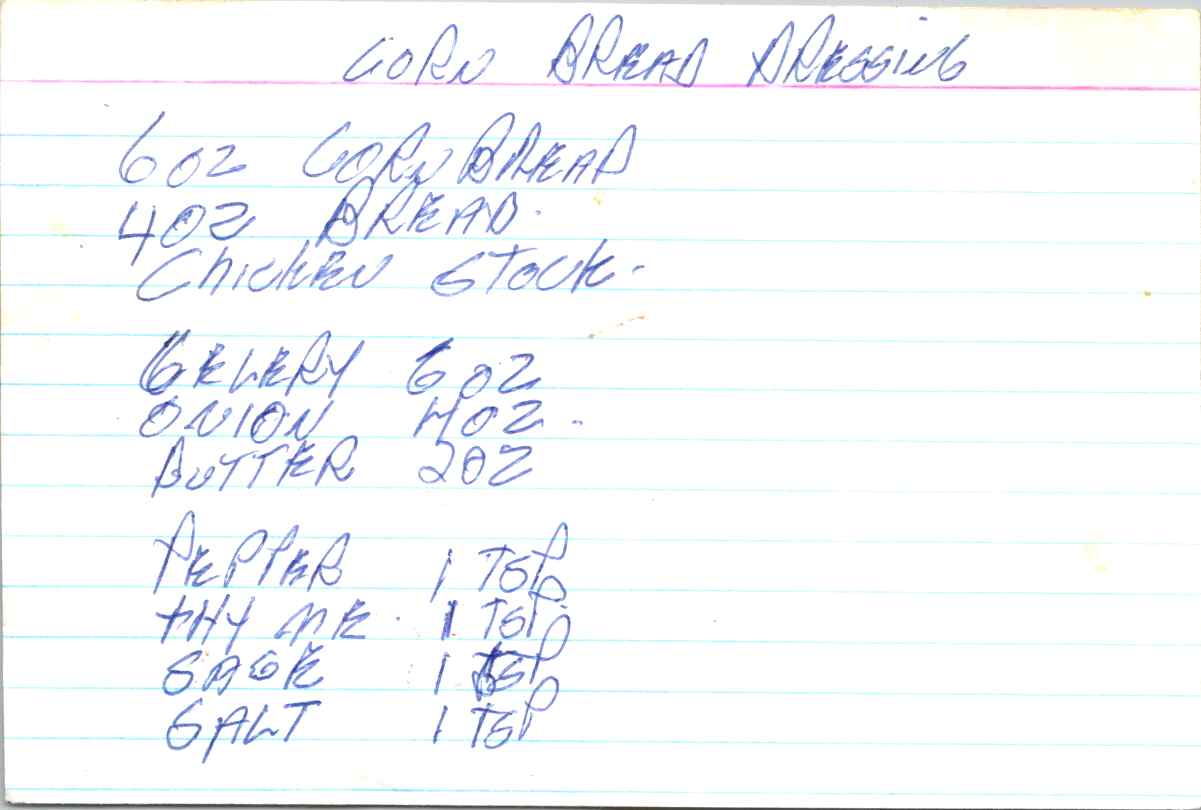 CORN BREAD DRESSING
6 OZ CORN BREAD
4 OZ BREAD.
Chicken Stock.
CELERY 6 OZ
ONION 4 OZ.
BUTTER 2 OZ
PEPPER 1 TSP
THYME. 1 TSP.
SAGE 1 TSP
SALT 1 TSP